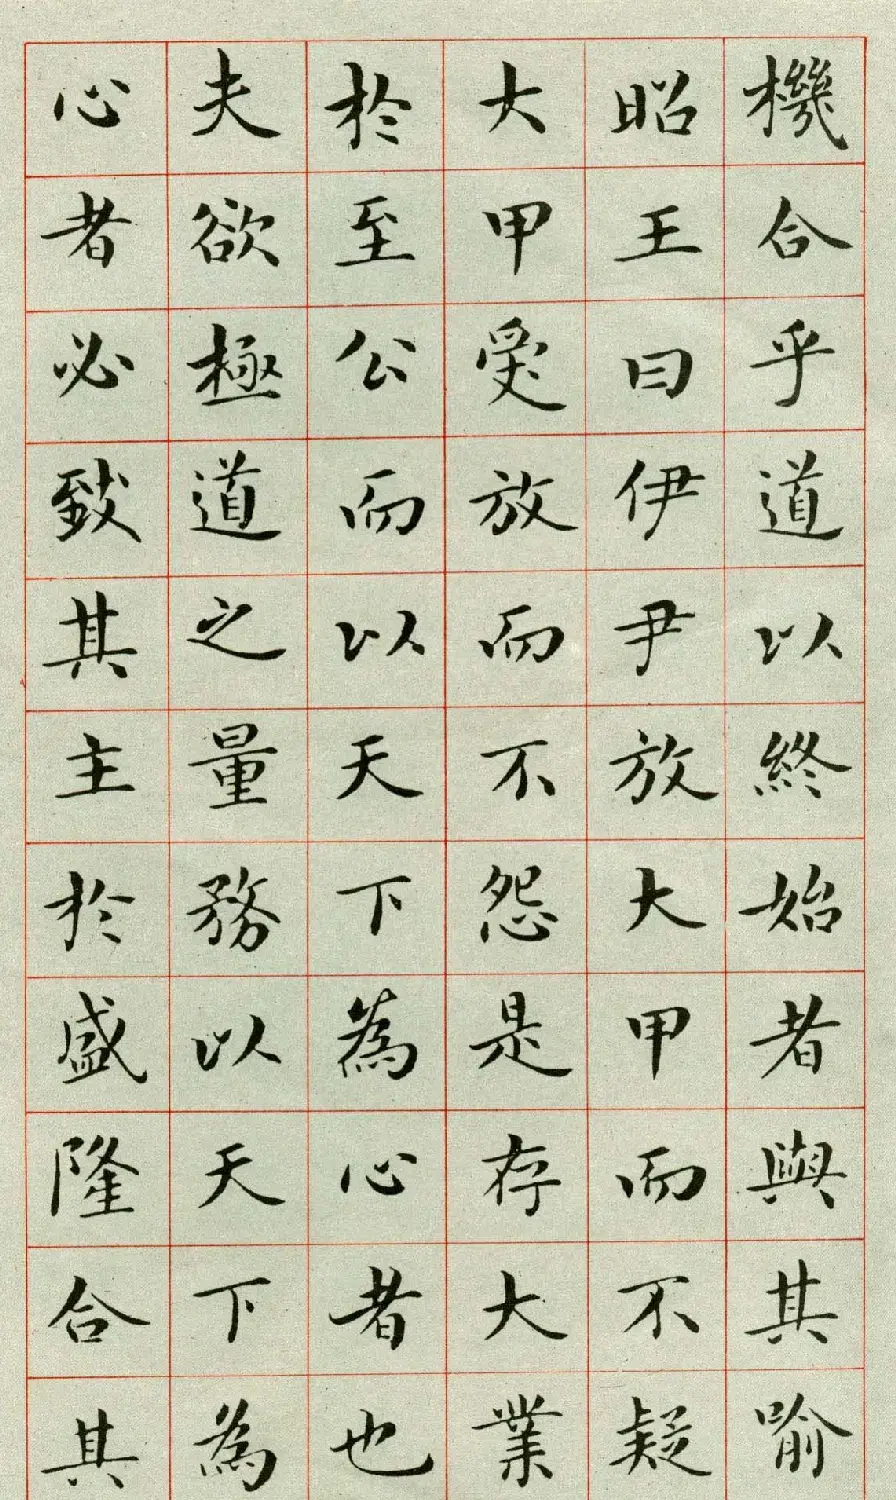 機合乎道以終始者與其喻
昭王曰伊尹放大甲而不疑
大甲受放而不怨是存大業
於至公而以天下為心者也
夫欲極道之量務以天下為
心者必致其主於盛隆合其